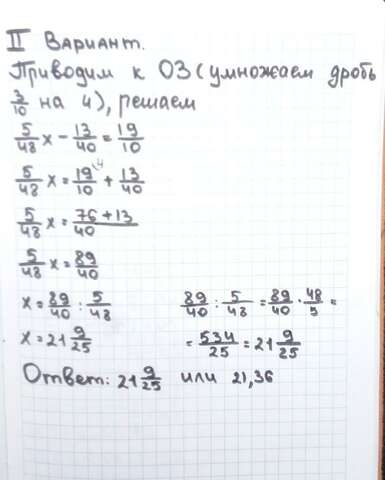 II Вариант.
Приводим к ОЗ (умножаем дробь
3/10 на 4), решаем
5/48 x - 13/40 = 19/10
5/48 x = 19/10 \4 + 13/40
5/48 x = 76+13/40
5/48 x = 89/40
x = 89/40 : 5/48
89/40 : 5/48 = 89/40 · 48/5 =
x = 21 9/25
= 534/25 = 21 9/25
Ответ: 21 9/25 или 21,36